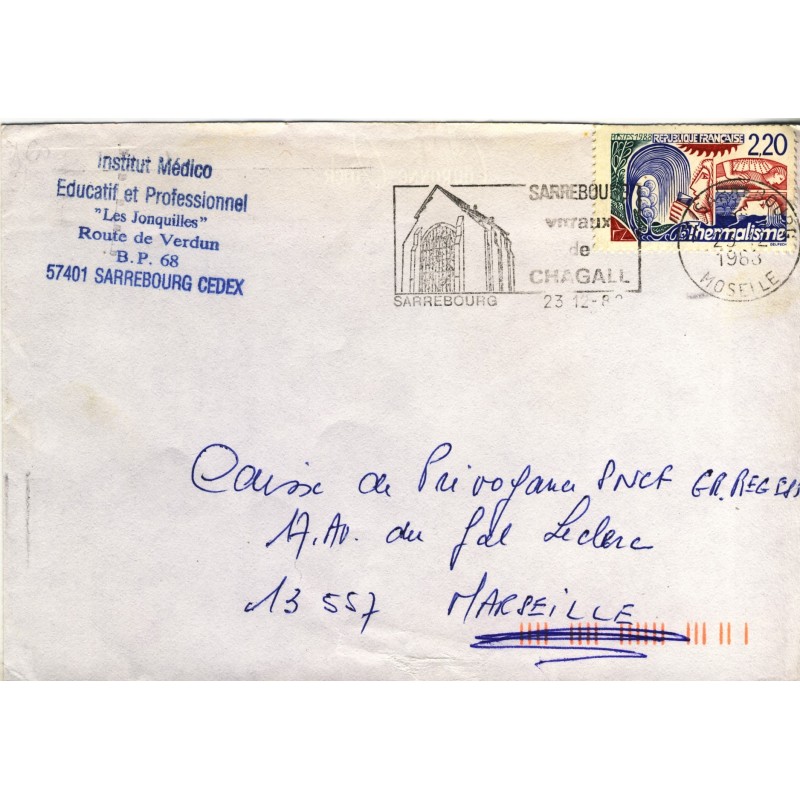 Institut Médico
Educatif et Professionnel
"Les Jonquilles"
Route de Verdun
B.P. 68
57401 SARREBOURG CEDEX
SARREBOURG
SARREBOU
vitraux
de
CHAGALL
23 12-8
POSTES 1988 REPUBLIQUE FRANÇAISE
2,20
Thermalisme
1988
MOSELLE
Caisse de Prévoyance SNCF GR. REG
17. Av. du Gal Leclerc
13 557 MARSEILLE